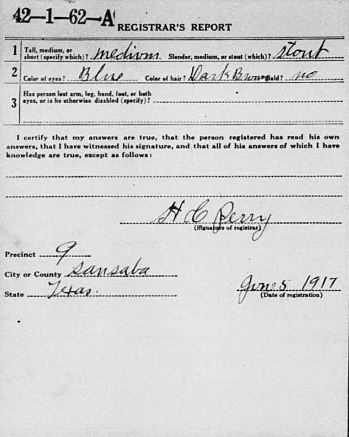 42-1-62-A
REGISTRAR'S REPORT
1 Tall, medium, or short (specify which)? medium Slender, medium, or stout (which)? stout
2 Color of eyes? Blue Color of hair? Dark Brown Bald? no
3 Has person lost arm, leg, hand, foot, or both
eyes, or is he otherwise disabled (specify)?
I certify that my answers are true, that the person registered has read his own
answers, that I have witnessed his signature, and that all of his answers of which I have
knowledge are true, except as follows:
H C Perry
(Signature of registrar)
Precinct 9
City or County San saba
State Texas
June 5 1917
(Date of registration)